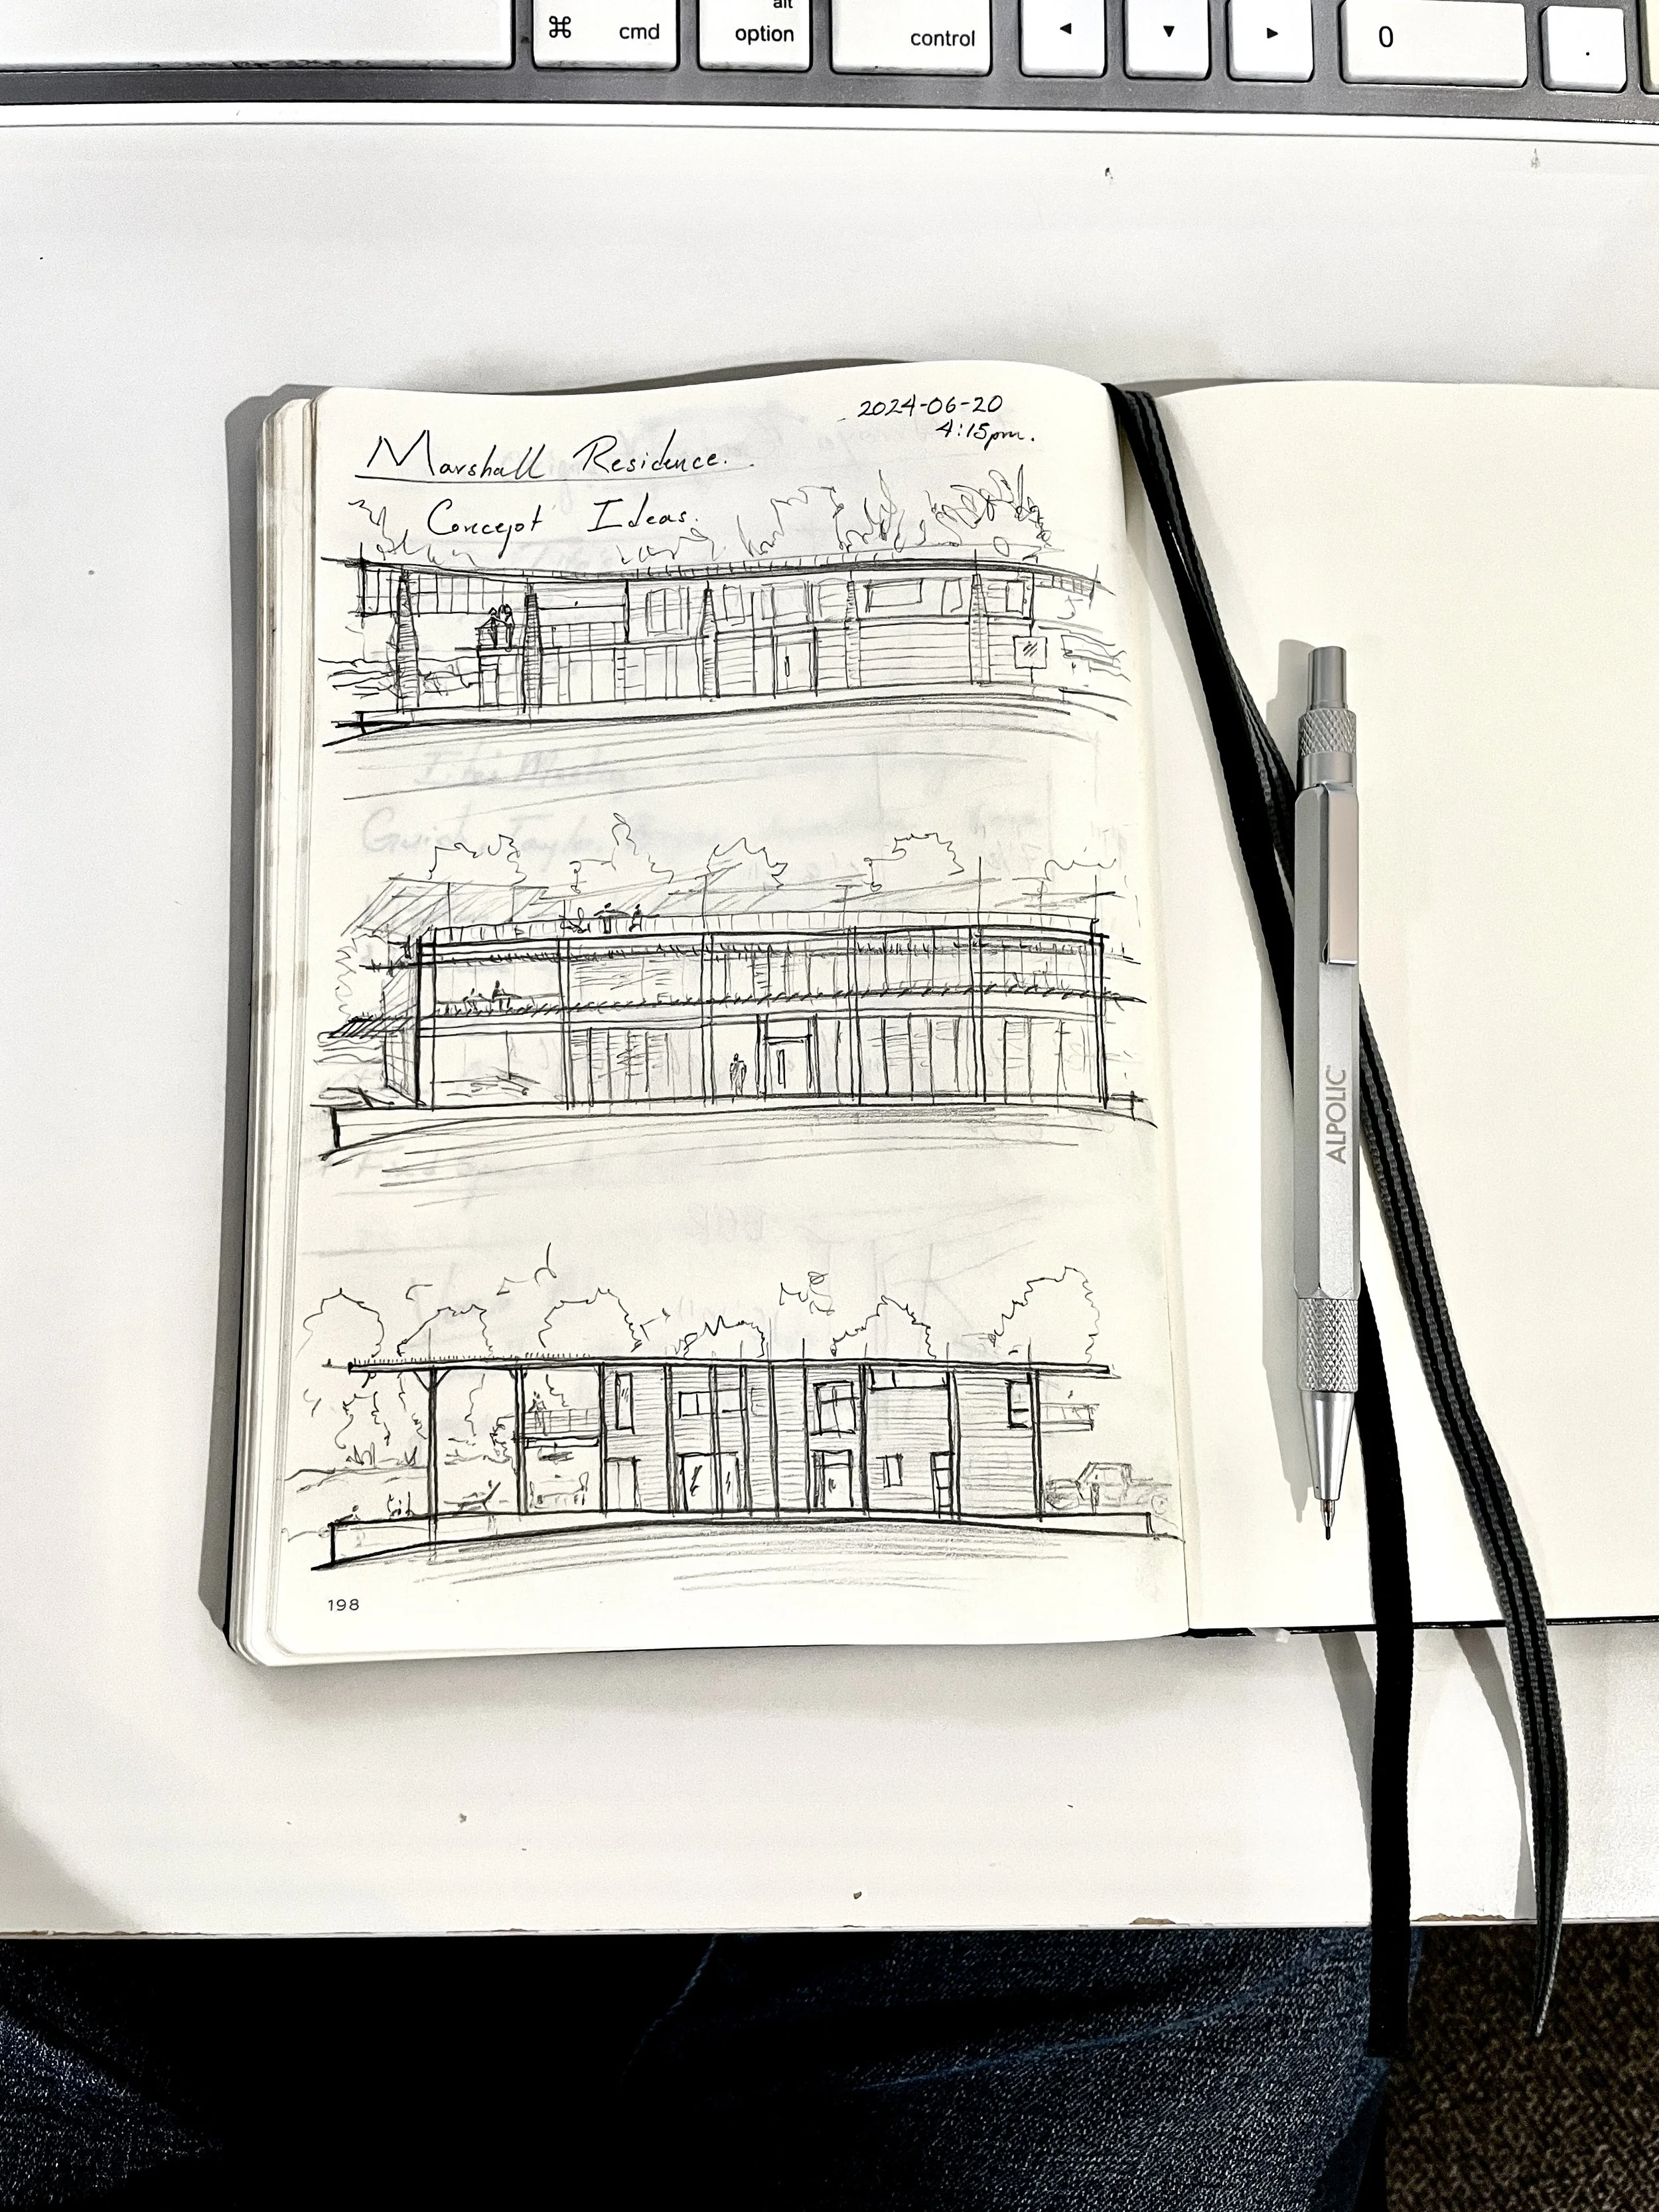 alt
⌘ cmd option control ◄ ▼ ► 0 .
2024-06-20
4:15pm.
Marshall Residence.
Concept Ideas.
ALPOLIC
198